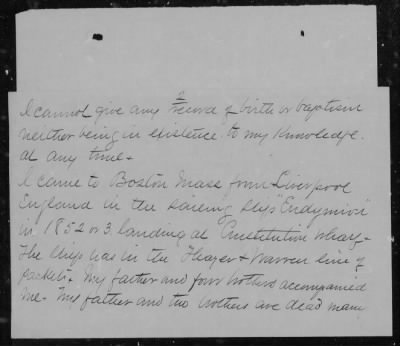 2
I cannot give any record of birth or baptism
neither being in existence to my Knowledge
at any time.
I came to Boston Mass from Liverpool
England in the Sailing Ship "Endymion"
in 1852 or 3. landing at Constitution wharf.
The Ship was in the Thayer & Warren line of
packets. My father and four brothers accompanied
me. My father and two brothers are dead many